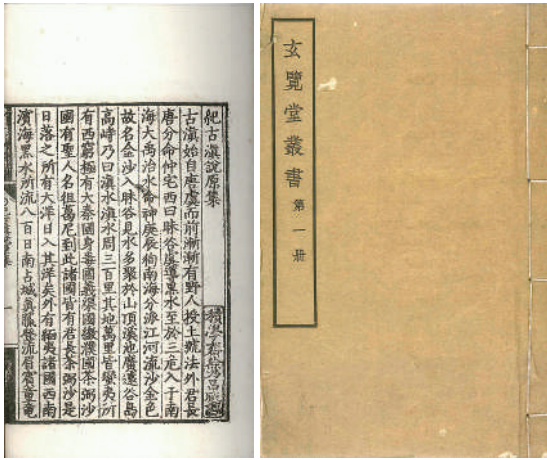 紀古滇說原集
古滇始自唐虞而前漸漸有野人授土號法外君長
唐分命仲宅西曰昧谷虞導黑水至於三危入于南
海大禹治水命神庚辰徇南海分派江河流沙金色
故名金沙入昧谷見水多聚於山頂溪池廣遠谷島
高峙乃曰滇水滇水周三百里其地萬里皆蠻夷所
有西窮極有大秦國身毒國義渠國緬濮國茶弼沙
國有聖人名徂葛尼到此諸國皆有君長茶弼沙是
日落之所有大洋日入其洋矣外有緬夷諸國西南
濱海黑水所流八百日南占城真臘登流眉賓童竜
玄覽堂叢書 第一册